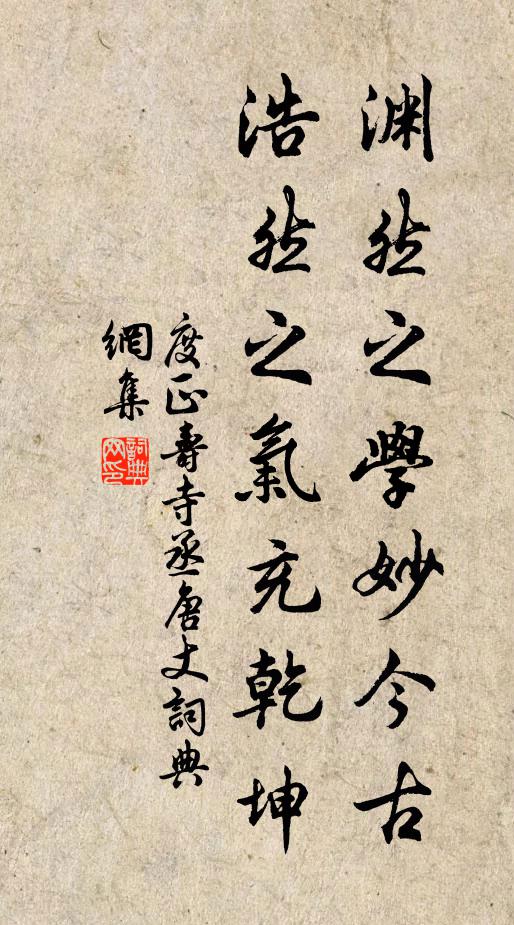 淵然之學妙今古
浩然之氣充乾坤
度正壽寺丞唐丈詞典
網集
詞典網印